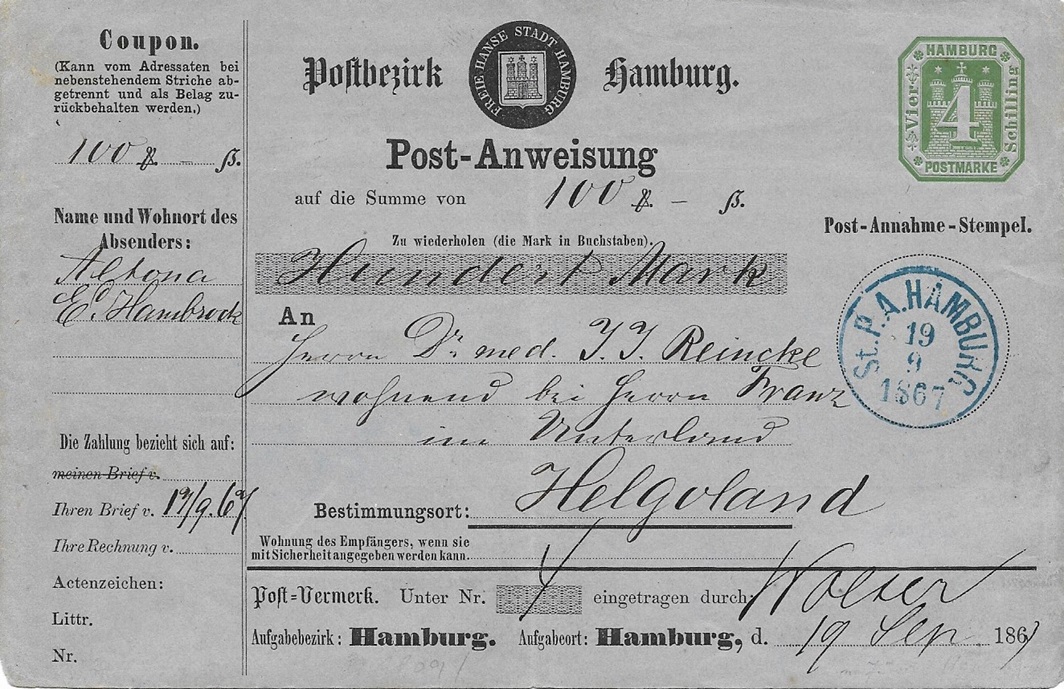 Coupon.
(Kann vom Adressaten bei
nebenstehendem Striche ab-
getrennt und als Belag zu-
rückbehalten werden.)
100 ₰ – ß.
Name und Wohnort des
Absenders:
Altona
Ed. Hambrock
Die Zahlung bezieht sich auf:
meinen Brief v.
Ihren Brief v. 17/9.67
Ihre Rechnung v.
Actenzeichen:
Littr.
Nr.
Postbezirk Hamburg.
FREIE HANSE STADT HAMBURG
Post-Anweisung
auf die Summe von 100 ₰. – ß.
Zu wiederholen (die Mark in Buchstaben).
Hundert Mark
An
Herrn Dr. med. J. J. Reincke
wohnend bei Herrn Franz
im Unterland
Bestimmungsort: Helgoland
Wohnung des Empfängers, wenn sie
mit Sicherheit angegeben werden kann.
Post-Vermerk. Unter Nr. eingetragen durch:
Aufgabebezirk: Hamburg. Aufgabeort: Hamburg, d. 19 Sep 1867
HAMBURG
Vier 4 Schilling
POSTMARKE
Post-Annahme-Stempel.
St. P. A. HAMBURG
19
9
1867